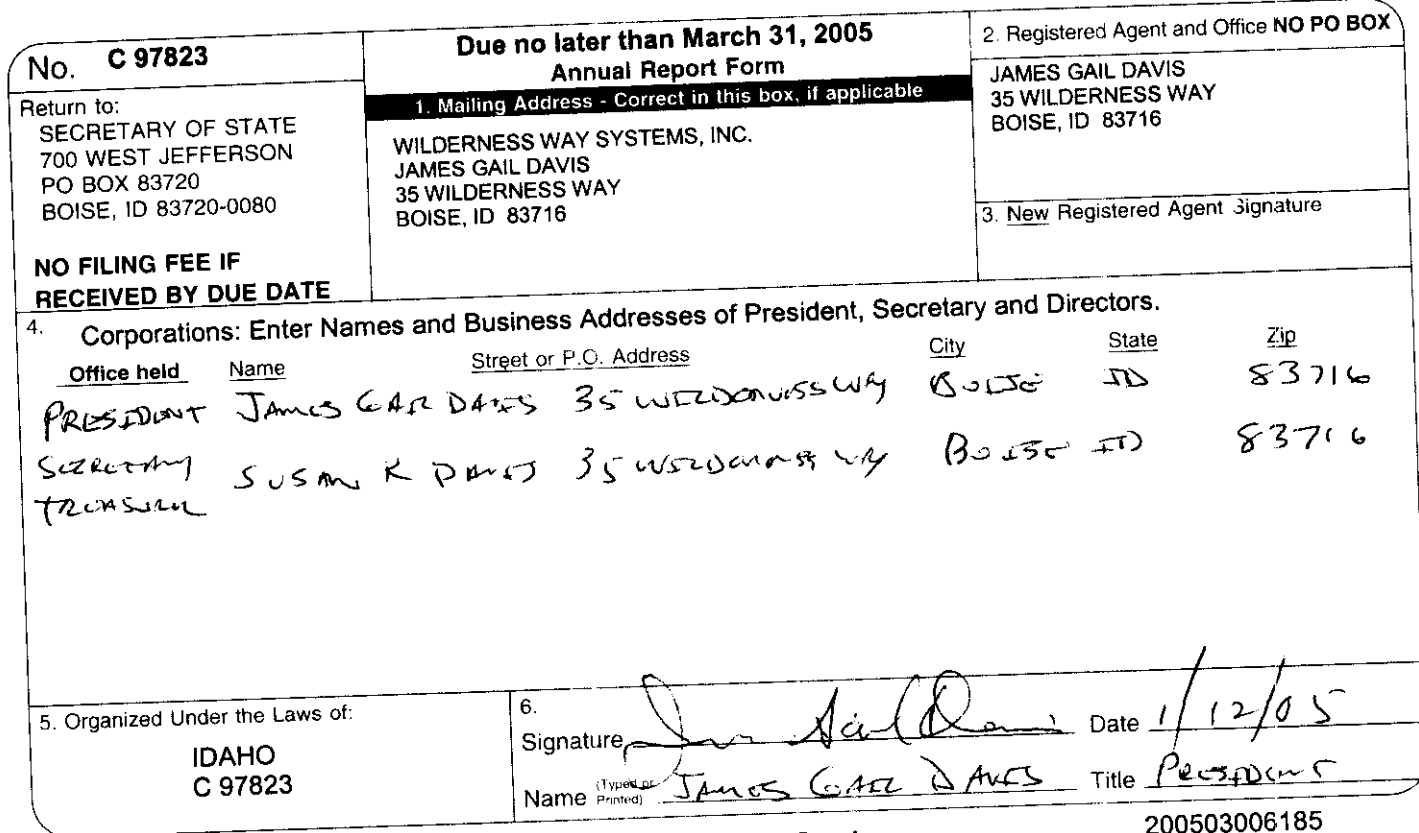 No. C 97823
Return to:
SECRETARY OF STATE
700 WEST JEFFERSON
PO BOX 83720
BOISE, ID 83720-0080
NO FILING FEE IF
RECEIVED BY DUE DATE
Due no later than March 31, 2005
Annual Report Form
1. Mailing Address - Correct in this box, if applicable
WILDERNESS WAY SYSTEMS, INC.
JAMES GAIL DAVIS
35 WILDERNESS WAY
BOISE, ID 83716
2. Registered Agent and Office NO PO BOX
JAMES GAIL DAVIS
35 WILDERNESS WAY
BOISE, ID 83716
3. New Registered Agent Signature
4. Corporations: Enter Names and Business Addresses of President, Secretary and Directors.
Office held Name Street or P.O. Address City State Zip
PRESIDENT JAMES GAIL DAVIS 35 WILDERNESS WAY BOISE ID 83716
SECRETARY SUSAN K DAVIS 35 WILDERNESS WAY BOISE ID 83716
TREASURER
5. Organized Under the Laws of:
IDAHO
C 97823
6.
Signature Gail Davis Date 1/12/05
Name (Typed or Printed) JAMES GAIL DAVIS Title PRESIDENT
200503006185